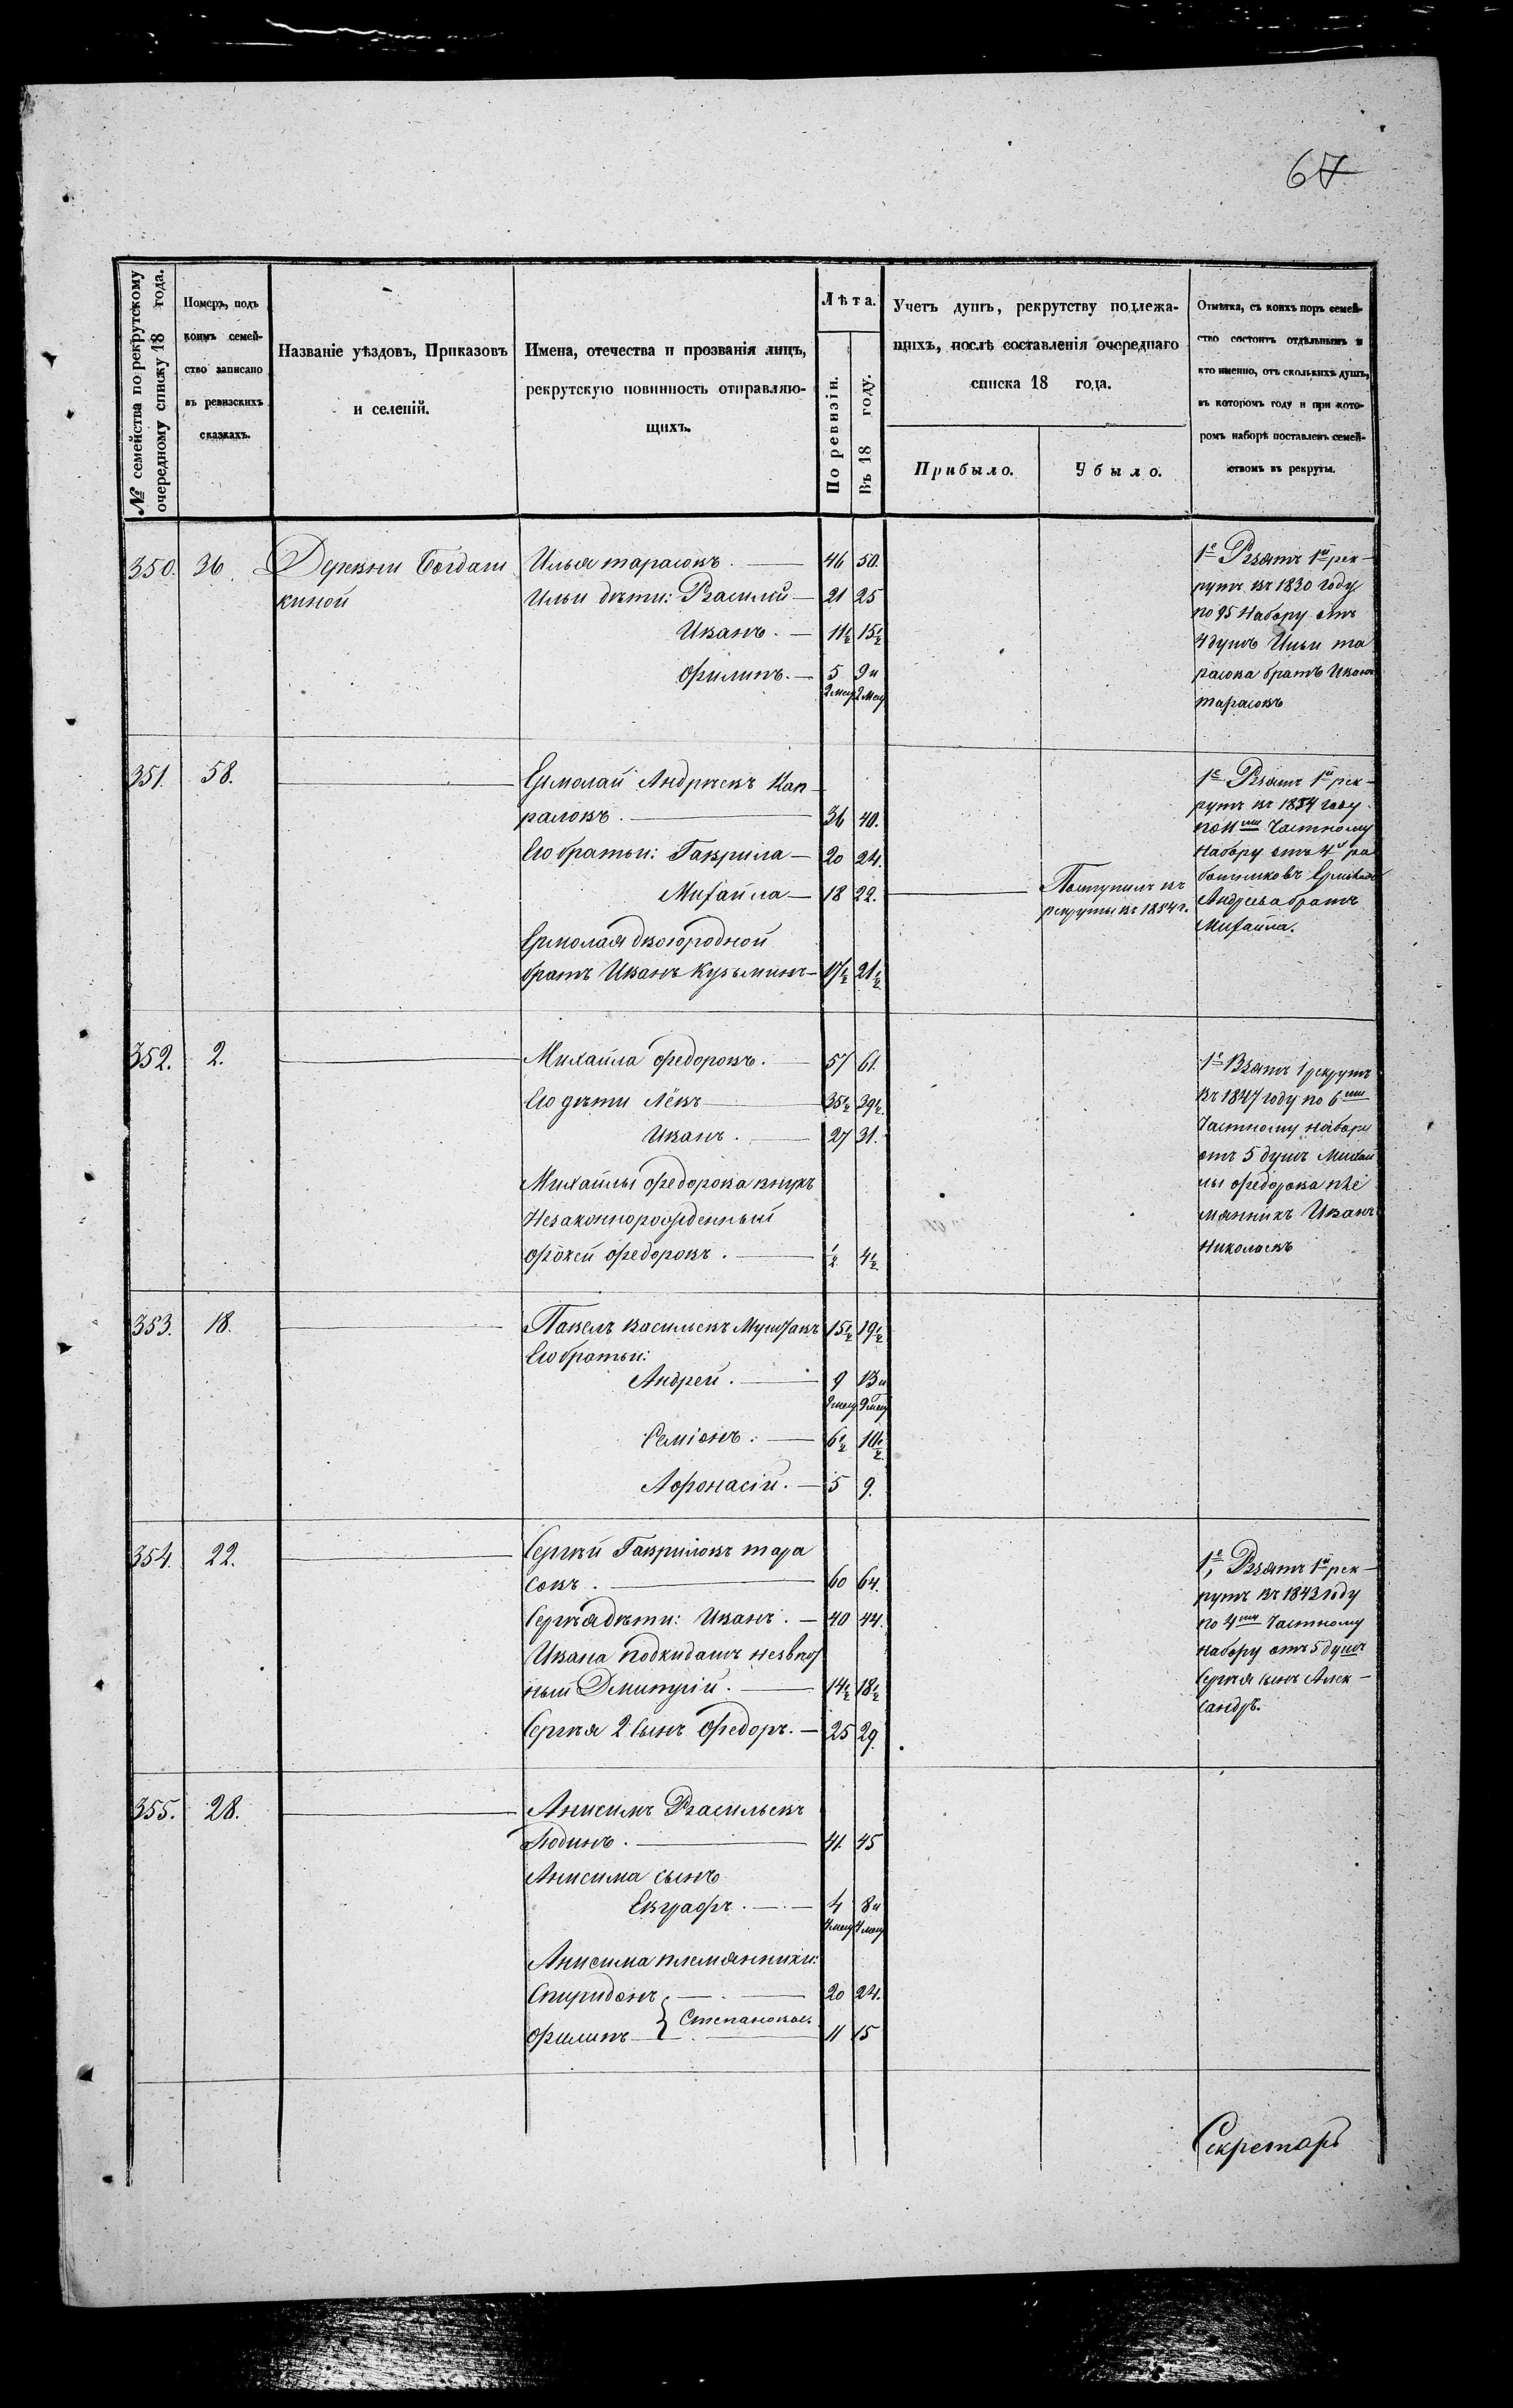 67
№ семейства по рекрутскому очередному списку 18 года.
Номеръ, подъ коимъ семейство записано въ ревизскихъ сказкахъ.
Названіе уѣздовъ, Приказовъ и селеній.
Имена, отечества и прозванія лицъ, рекрутскую повинность отправляющихъ.
Лѣта.
По ревизіи.
Въ 18 году.
Учетъ душъ, рекрутству подлежащихъ, послѣ составленія очереднаго списка 18 года.
Прибыло.
Убыло.
Отмѣтка, съ коихъ поръ семейство состоитъ отдѣльнымъ и кто именно, отъ сколькихъ душъ, въ которомъ году и при которомъ наборѣ поставленъ семействомъ въ рекруты.
350. 36. Деревни Богдаш
киной
Илья тарасовъ. 46 50.
Ильи дѣти: Василий 21 25
Иванъ. 11½ 15½
Филипъ. 5 9 и
2 мец 2 мец
1е Взятъ 1й рек-
рутъ въ 1830 году
по 95 Набору отъ
4 душъ Ильи та
расова братъ Иванъ
тарасовъ
351. 58.
Ермолай Андрѣевъ Кап
раловъ. 36 40.
Его братьи: Гаврила 20 24.
Михайла 18 22.
Поступилъ въ
рекруты въ 1854 г.
Ермолая двоюродной
братъ Иванъ Кузьминъ 17½ 21½
1е Взятъ 1й рек-
рутъ въ 1854 году
по 11му Частному
Набору отъ 4х ра
ботниковъ Ермолая
Андреева братъ
Михайла.
352. 2.
Михайла Федоровъ. 57 61.
Его дѣти Лёвъ 35½ 39½.
Иванъ. 27 31.
Михайлы Федорова внукъ
Незаконнорожденный
Фокей Федоровъ. ½ 4½
1е Взятъ 1 рекрутъ
въ 1847 году по 6му
Частному набору
отъ 5 душъ Михай
лы Федорова пле
мянникъ Иванъ
Николаевъ
353. 18.
Павелъ васильевъ 15½ 19½
Его братьи:
Андрей. 9 13 и
9 мец 9 мец
Семіонъ. 6½ 10½
Афонасій. 5 9.
354. 22.
Сергѣй Гавриловъ тара
совъ. 60 64.
Сергѣя дѣти: Иванъ. 40 44.
Ивана подкидашъ
ный Дмитрій. 14½ 18½
Сергѣя 2 сынъ Федоръ. 25 29.
1е, Взятъ 1й рек-
рутъ въ 1843 году
по 4му Частному
набору отъ 5 душъ
Сергѣя сынъ Алек-
сандръ.
355. 28.
Анисимъ Васильевъ
Юдинъ. 41. 45
Анисима сынъ
Евграфъ. 4 8 и
4 мец 4 мец
Анисима племянники:
Спиридонъ 20 24.
Степановы.
Филипъ 11 15
Секретарь